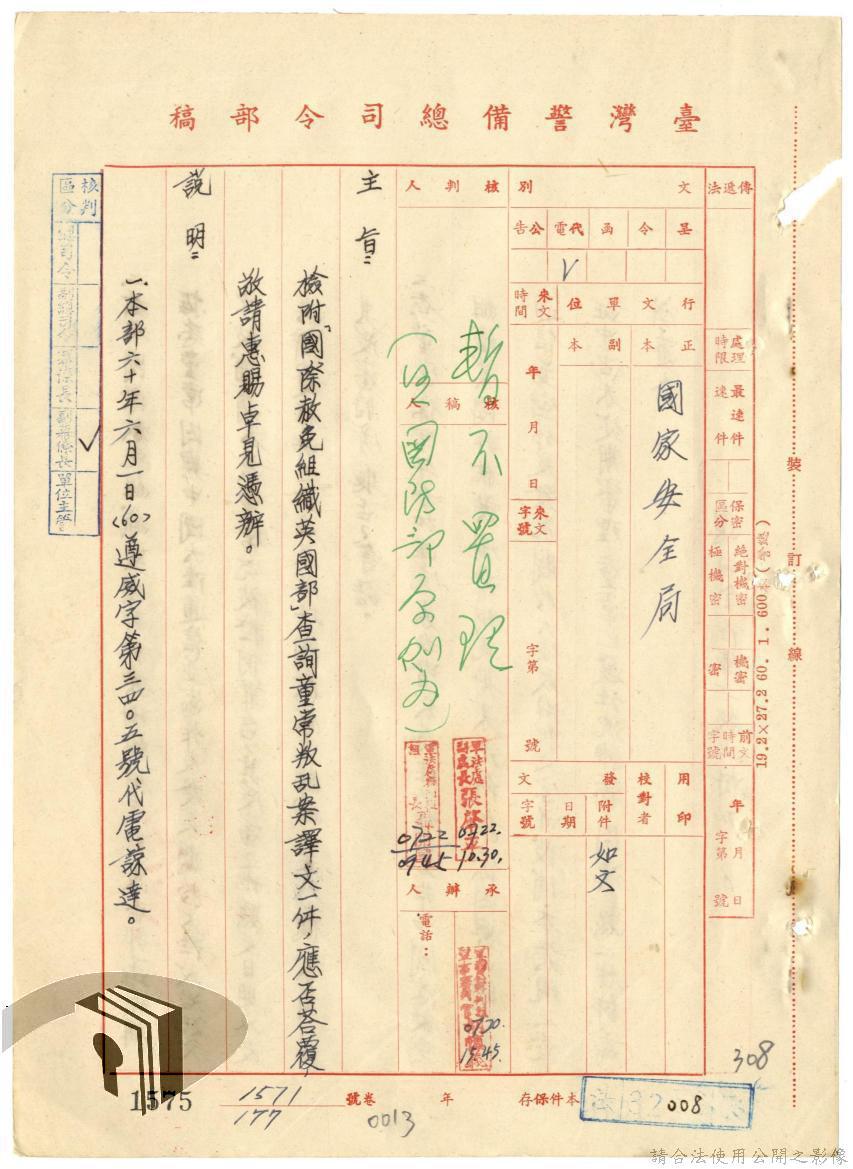 臺灣警備總司令部稿
傳遞法
處理時限
最速件
速件
保密區分
絕對機密
極機密
機密
密
前文時間字號
年月日
字第號
文別
呈
令
函
代電
公告
V
行文單位
正本
副本
國家安全局
來文時間
年月日
來文字號
字第號
用印
校對者
發文
附件
日期
字號
如文
核判人
核稿人
承辦人
電話：
暫不置理
(依國防部原則為)
0722.
10.30.
0722
0945
0720.
15.45.
主旨：
檢附「國際赦免組織英國部」查詢童常叛乱案譯文一件，應否荅覆，
敬請惠賜卓見憑辦。
說明：
一、本部六十年六月一日(60)遵威字第三四〇五號代電諒達。
核判區分
總司令
副總司令
參謀長
副參謀長
單位主管
裝訂線
19.2×27.2 60. 1. 600
308
008
本件保存
年
卷號
1571
177
1575
0013
請合法使用公開之影像